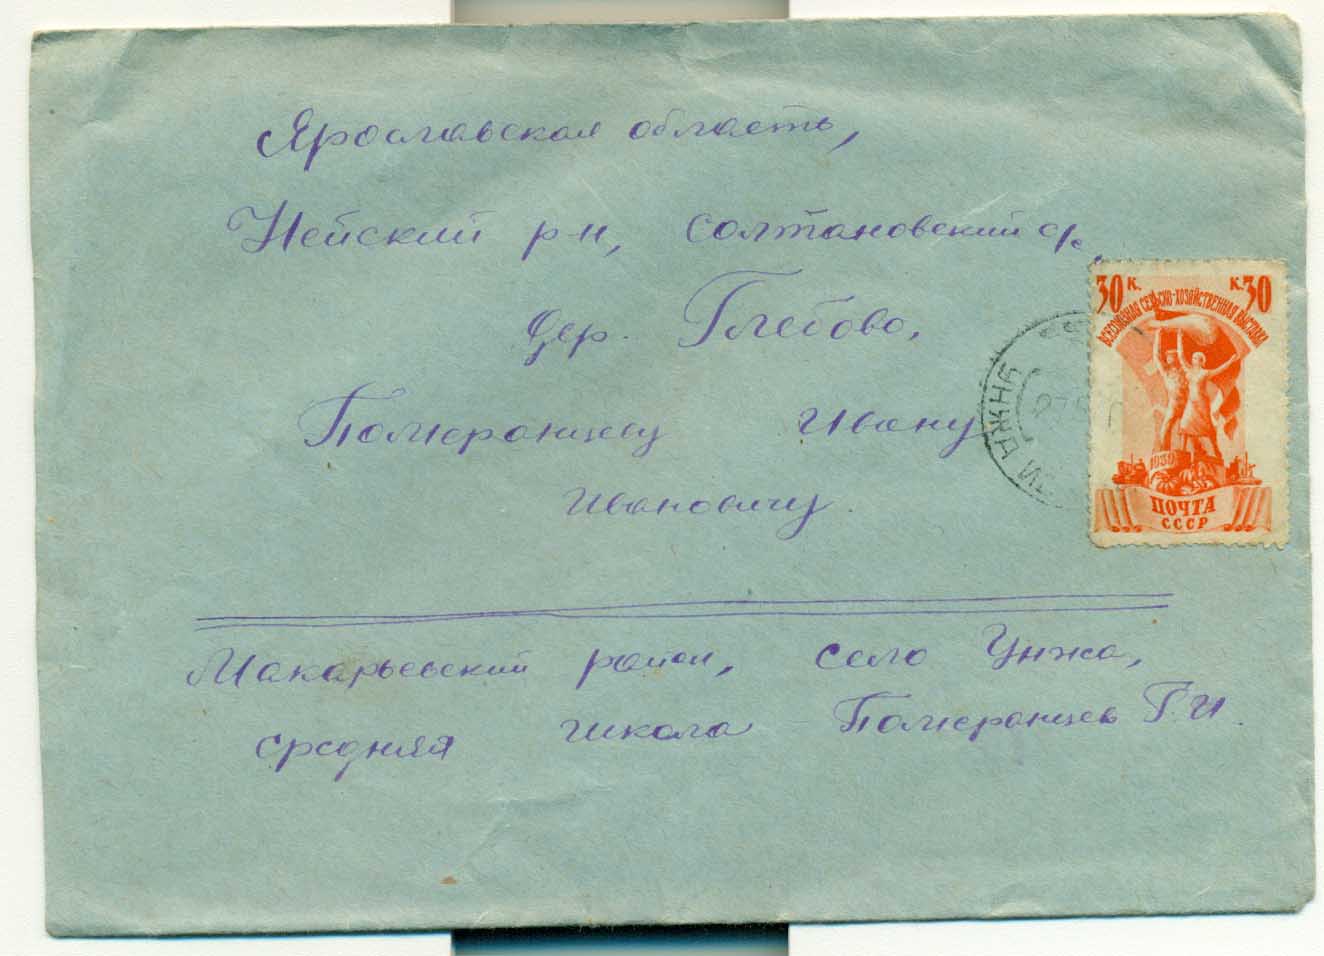 Ярославская область,
Нейский р-н, Солтановский с/с,
дер. Глебово,
Померанцеву Ивану
Ивановичу.
30 к. к. 30
ВСЕСОЮЗНАЯ СЕЛЬСКО-ХОЗЯЙСТВЕННАЯ ВЫСТАВКА
1939
ПОЧТА
СССР
Макарьевский район, село Унжа,
средняя школа Померанцев Г. И.